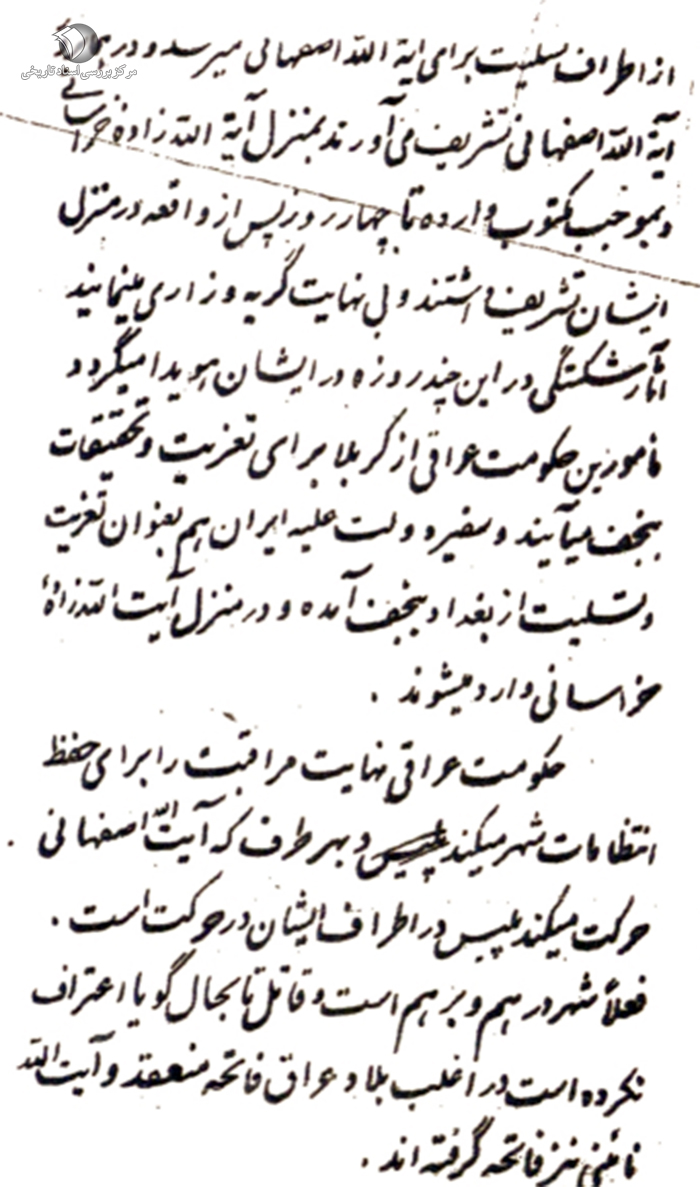 مرکز بررسی اسناد تاریخی
از اطراف تسلیت برای ایة الله اصفهانی میرسد و در
آیة الله اصفهانی تشریف می‌آورند بمنزل آیة الله زادهٔ خراسانی
و بموجب مکتوب وارده تا چهار روز پس از واقعه در منزل
ایشان تشریف داشتند و بی نهایت گریه و زاری مینمایند
آثار شکستگی در این چند روزه در ایشان هویدا میگردد
مامورین حکومت عراقی از کربلا برای تعزیت و تحقیقات
بنجف میآیند و سفیر دولت علیه ایران هم بعنوان تعزیت
و تسلیت از بغداد بنجف آمده و در منزل آیت الله زادهٔ
خراسانی وارد میشوند .
حکومت عراقی نهایت مراقبت را برای حفظ
انتظامات شهر میکند پلیس و بهر طرف که آیت الله اصفهانی
حرکت میکند پلیس در اطراف ایشان در حرکت است .
فعلاً شهر در هم و برهم است و قاتل تا بحال گویا اعتراف
نکرده است در اغلب بلاد عراق فاتحه منعقد و آیت الله
نائینی نیز فاتحه گرفته اند .